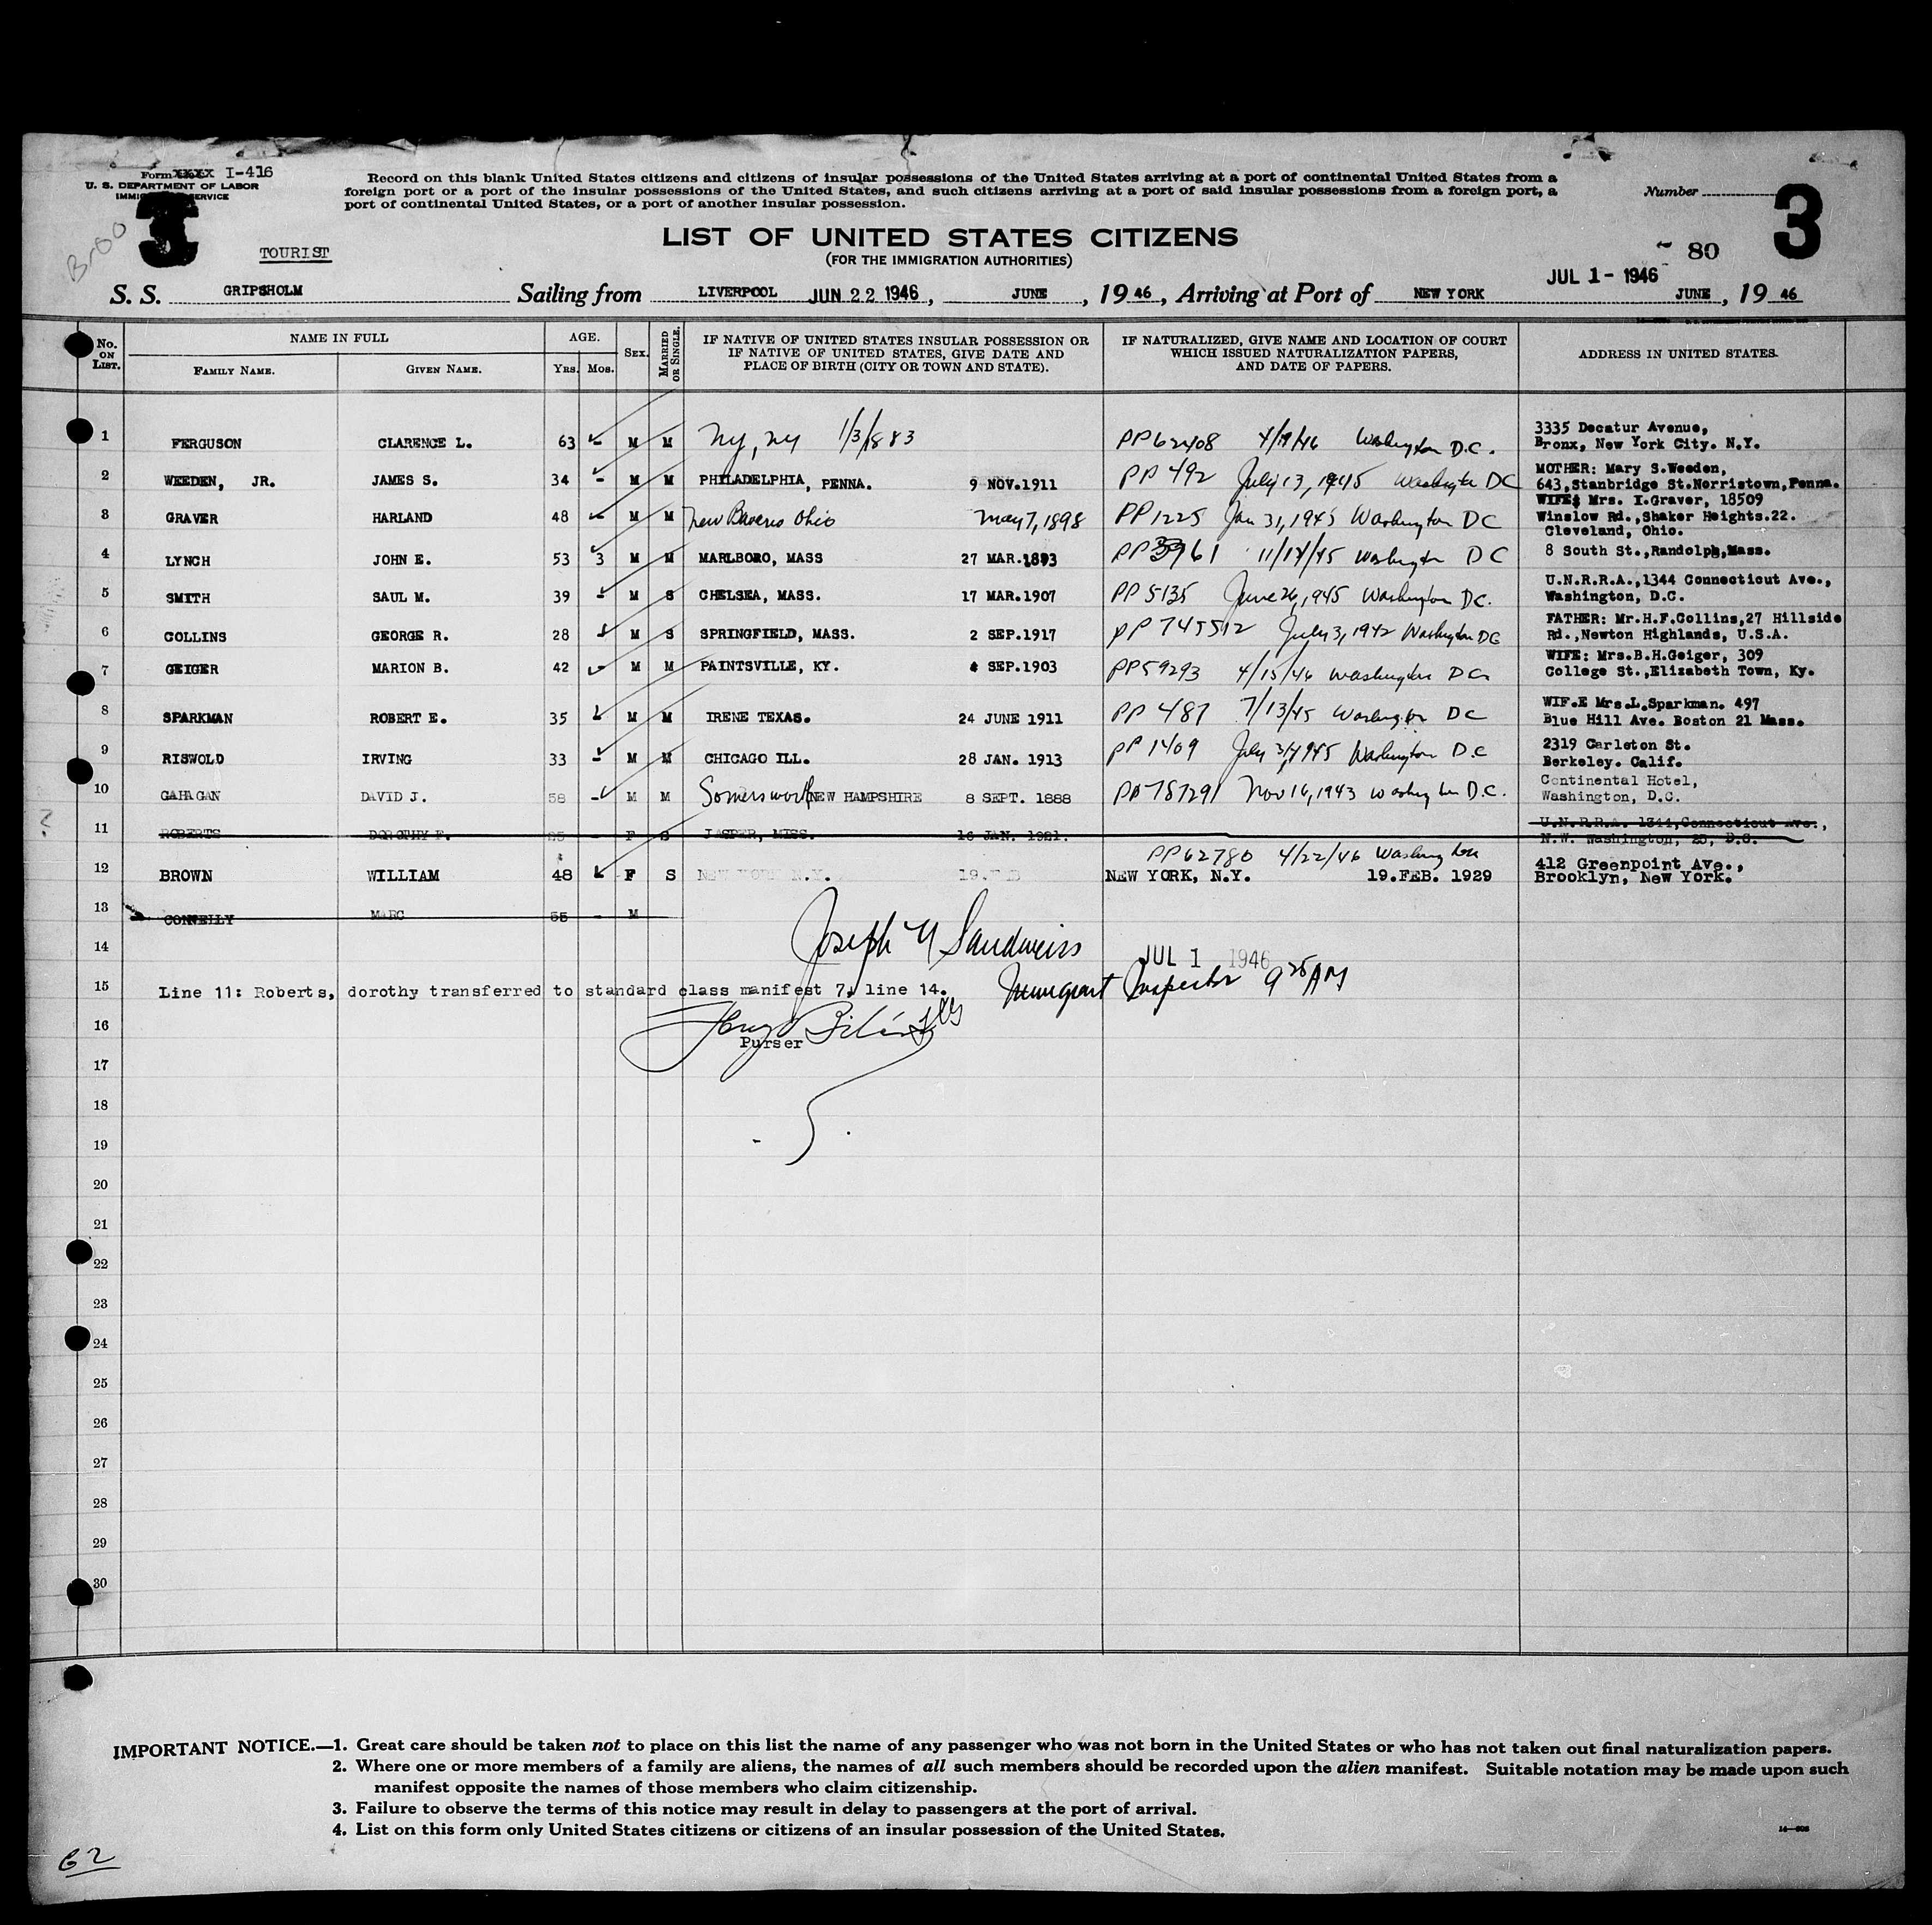 Form XXXX I-416
U. S. DEPARTMENT OF LABOR
Record on this blank United States citizens and citizens of insular possessions of the United States arriving at a port of continental United States from a
foreign port or a port of the insular possessions of the United States, and such citizens arriving at a port of said insular possessions from a foreign port, a
port of continental United States, or a port of another insular possession.
Number
3
3
TOURIST
LIST OF UNITED STATES CITIZENS
(FOR THE IMMIGRATION AUTHORITIES)
80
JUL 1 - 1946
S. S. GRIPSHOLM Sailing from LIVERPOOL JUN 22 1946, JUNE, 1946, Arriving at Port of NEW YORK JUNE, 19 46
No. ON LIST. NAME IN FULL AGE. SEX. MARRIED OR SINGLE. IF NATIVE OF UNITED STATES INSULAR POSSESSION OR IF NATIVE OF UNITED STATES, GIVE DATE AND PLACE OF BIRTH (CITY OR TOWN AND STATE). IF NATURALIZED, GIVE NAME AND LOCATION OF COURT WHICH ISSUED NATURALIZATION PAPERS, AND DATE OF PAPERS. ADDRESS IN UNITED STATES.
FAMILY NAME. GIVEN NAME. YRS. MOS.
1 FERGUSON CLARENCE L. 63 - M M NY, NY 1/3/1883 PP62408 4/19/46 Washington D.C. 3335 Decatur Avenue,
Bronx, New York City. N.Y.
2 WEEDEN, JR. JAMES S. 34 - M M PHILADELPHIA, PENNA. 9 NOV.1911 PP 492 July 13, 1945 Washington DC MOTHER: Mary S.Weeden,
643,Stanbridge St.Norristown,Penna.
3 GRAVER HARLAND 48 - M M New Bavaria Ohio May 7, 1898 PP1225 Jan 31, 1945 Washington DC WIFE: Mrs. I.Graver, 18509
Winslow Rd.,Shaker Heights.22.
Cleveland, Ohio.
4 LYNCH JOHN E. 53 3 M M MARLBORO, MASS 27 MAR.1893 PP3961 11/14/45 Washington DC 8 South St.,Randolph,Mass.
5 SMITH SAUL M. 39 - M S CHELSEA, MASS. 17 MAR.1907 PP5135 June 26, 1945 Washington DC. U.N.R.R.A.,1344 Connecticut Ave.,
Washington, D.C.
6 COLLINS GEORGE R. 28 M S SPRINGFIELD, MASS. 2 SEP.1917 PP 745512 July 3, 1942 Washington DC FATHER: Mr.H.F.Collins,27 Hillside
Rd.,Newton Highlands, U.S.A.
7 GEIGER MARION B. 42 - M M PAINTSVILLE, KY. 4 SEP.1903 PP59293 4/15/46 Washington DC WIFE: Mrs.B.H.Geiger, 309
College St.,Elizabeth Town, Ky.
8 SPARKMAN ROBERT E. 35 M M IRENE TEXAS. 24 JUNE 1911 PP 487 7/13/45 Washington DC WIF.E Mrs.L.Sparkman. 497
Blue Hill Ave. Boston 21 Mass.
9 RISWOLD IRVING 33 - M M CHICAGO ILL. 28 JAN. 1913 PP 1409 July 1945 Washington D.C 2319 Carleton St.
Berkeley. Calif.
10 GAHAGAN DAVID J. 58 - M M Somersworth NEW HAMPSHIRE 8 SEPT. 1888 PP787291 Nov 16, 1943 Washington D.C. Continental Hotel,
Washington, D.C.
11 ROBERTS DOROTHY F. 25 - F S JASPER, MISS. 16 JAN. 1921. U.N.R.R.A. 1344,Connecticut Ave.,
N.W. Washington, 25, D.C.
PP62780 4/22/46 Washington
12 BROWN WILLIAM 48 F S NEW YORK N.Y. 19.FEB NEW YORK, N.Y. 19.FEB. 1929 412 Greenpoint Ave.,
Brooklyn, New York.
13 CONNELLY MARC 55 - M
14 Joseph N Sandweiss JUL 1 1946
15 Line 11: Roberts, dorothy transferred to standard class manifest 7, line 14. Immigrant Inspector 9 25 AM
16
Purser
17
18
19
20
21
22
23
24
25
26
27
28
29
30
IMPORTANT NOTICE.—1. Great care should be taken not to place on this list the name of any passenger who was not born in the United States or who has not taken out final naturalization papers.
2. Where one or more members of a family are aliens, the names of all such members should be recorded upon the alien manifest. Suitable notation may be made upon such
manifest opposite the names of those members who claim citizenship.
3. Failure to observe the terms of this notice may result in delay to passengers at the port of arrival.
4. List on this form only United States citizens or citizens of an insular possession of the United States.
62